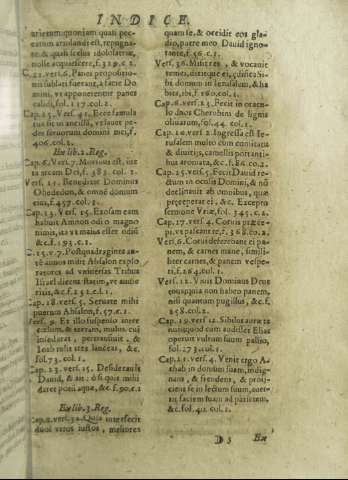 INDICE.
arietem: quoniam quasi pec-
catum ariolandi est, repugna-
re & quasi scelus idololatriæ,
nolle acquiescere, f.329.c 2.
C. 21. vers 6. Panes propositio-
nis sublati fuerant, à facie Do
mini, vt apponerentur panes
calidi, fol. 117. col. 2.
Cap. 25. vers. 41. Ecce famula
tua sit in ancillã, vt lauet pe-
des seruorum domini mei, f.
406. col. 2.
Ex lib. 2. Reg.
Cap. 6. Vers. 7. Mortuus est, iux
ta arcam Dei, f. 382. col. 2.
Vers. 11. Benedixit Dominus
Obededom, & omnẽ domum
eius, f. 459. col. 1.
Cap. 13. Vers. 15. Exosam eam
habuit Amnon odio magno
nimis, ita vt maius esset odiũ
&c. f. 193. c 1.
C. 15. v. 7. Post quadraginta au-
misit Absalon explo
ratores ad vniuersas Tribus
Israel dicens statim, vt audie
ritis, &c. f. 251. c. 1.
Cap. 18. vers. 5. Seruate mihi
puerum Absalon, f. 57. c. 1.
Vers. 9. Et illo suspenso inter
cælum, & terram, mulus cui
insederat, pertransiuit, &
Ioab misit tres lanceas, &c.
fol. 73. col. 1.
Cap. 23. vers. 15. Desiderauit
Dauid, & ait: ô si quis mihi
daret potũ aquæ, &c f. 90. c 2
Ex lib. 3. Reg.
Cap. 2. vers. 32. Quia interfecit
duos viros iustos, meliores
quam se, & occidit eos gla
dio, patre meo Dauid igno-
rante, f. 56. c. 1.
Vers. 36. Misit rex, & vocauit
Semei, dixitque ei, ædifica tibi
domum in Ierusalem, & ha
bita, ibi, f. 160. col. 1.
Cap. 6. vers. 23. Fecit in oracu-
lo duos Cherubim de lignis
oliuarum, fol. 44. col. 1.
Cap. 10. vers 2. Ingressa est Ie-
rusalem multo cum comitatu
& diuitijs, camellis portanti-
bus aromata, &c. f. 86. col. 2.
Cap. 15. vers. 5. Fecit Dauid re-
ctum in oculis Domini, & nõ
declinauit ab omnibus, quæ
præceperat ei, &c. Excepto
sermone Vriæ, fol. 345. c. 2.
Cap. 17. vers. 4. Coruis præce-
pi, vt pascant te, f. 368. co. 2.
Vers. 6. Corui deferebant ei pa
nem, & carnes mane, simili-
ter carnes, & panem vespe-
ri, f. 264. col. 1.
Vers. 12. Viuit Dominus Deus
tuus quia non habeo panem,
nisi quantum pugillus, &c. f.
258. col. 2.
Cap. 19. vers 12. Sibilus auræ te
nuis quod cum audisset Elias
operuit vultum suum pallio,
fol. 273. col. 1.
Cap. 21. vers. 4. Venit ergo A-
chab in domum suam, indig-
nans, & frendens, & proij-
ciens se in lectum suum, auer-
tit faciem suam ad parietem,
&c. fol. 40. col. 1.
D 3 Ex